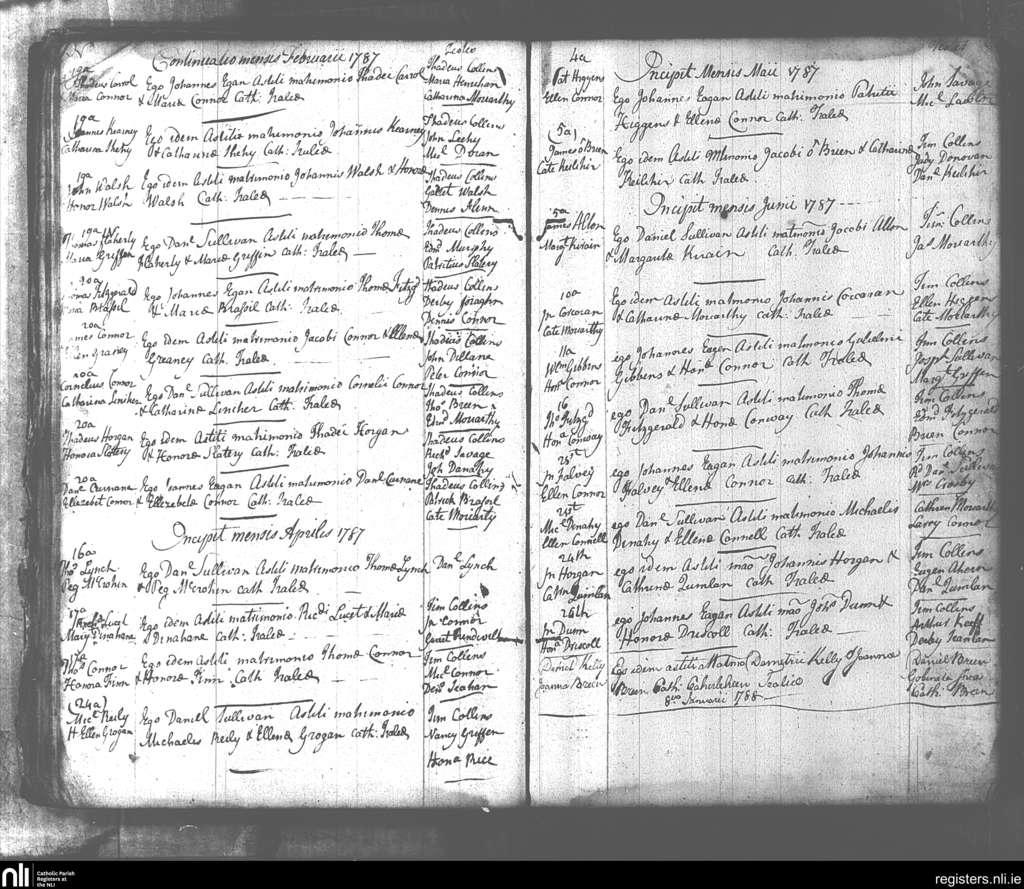 Continuatio mensis Februarii 1787
Testes
19a
Thadeus Carrol
Maria Connor
Ego Johannes Egan Astiti matrimonio Thadei Carol
& Mariæ Connor Cath: Traleæ
Thadeus Collins
Maria Henehan
Catharina Moriarthy
19a
Joannes Kearney
Catharina Shehy
Ego idem Astiti matrimonio Johannis Kearney
& Catharinæ Shehy Cath: Traleæ
Thadeus Collins
John Leehy
Micl Doran
19a
John Walsh
Honor Walsh
Ego idem Astiti matrimonio Johannis Walsh & Honoræ
Walsh Cath: Traleæ
Thadeus Collins
Garet Walsh
Dennis
19a
Thomas Flaherty
Maria Griffen
Ego Danl Sullivan Astiti matrimonio Thomæ
Flaherly & Mariæ Griffin Cath: Traleæ
Thadeus Collins
Edmd Murphy
Patritius Slatery
20a
Thomas Fitzgerald
Maria Brassil
Ego Johannes Egan Astiti matrimonio Thomæ Fitzgd
& Mariæ Brassil Cath: Traleæ
Thadeus Collins
Derby
Dennis Connor
20a
James Connor
Ellen Graney
Ego idem Astiti matrimonio Jacobi Connor & Ellenæ
Greaney Cath: Traleæ
Thadeus Collins
John Dillane
Peter Connor
20a
Cornelius Connor
Catharina Lincher
Ego Danl Sullivan Astiti matrimonio Cornelii Connor
& Catharinæ Lincher Cath: Traleæ
Thadeus Collins
Thos Breen
Edmd Moriarthy
20a
Thadeus Horgan
Honora Slattery
Ego idem Astiti matrimonio Thadei Horgan
& Honoræ Slatery Cath: Traleæ
Thadeus Collins
Richd Savage
Joh Danahy
20a
Danl Cusnane
Elizabet Connor
Ego Joannes Eagan Astiti matrimonio Danl Cusnane
& Ellizebetæ Connor Cath: Traleæ
Thadeus Collins
Patrick Brassil
Cate Moriarty
Incipit mensis Aprilis 1787
16a
Thos Lynch
Peg McCrohen
Ego Danl Sullivan Astiti matrimonio Thomæ Lynch
& Peg McCrohen cath Traleæ
Danl Lynch
17a
Mary Dinahane
Ego idem Astiti matrimonio Ricdi Lucet & Mariæ
Dinahane Cath: Traleæ
Tim Collins
Jn Connor
Garet
17a
Thos Connor
Honora Finn
Ego idem Astiti matrimonio Thomæ Connor
& Honoræ Finn Cath Traleæ
Tim Collins
Micl Connor
24a
Micl Reily
Ellen Grogan
Ego Daniel Sullivan Astiti matrimonio
Michaelis Reily & Ellenæ Grogan cath: Traleæ
Tim Collins
Nancy Griffen
Hona Rice
4a
Pat Higgens
Ellen Connor
Incipit Mensis Maii 1787
Ego Johannes Eagan Astiti matrimonio Patritii
Higgens & Ellenæ Connor Cath: Traleæ
John Savage
Micl
5a
James ô Breen
Cate Keilihir
Ego idem Astiti Mrimonio Jacobi ô Breen & Catharinæ
Keilihir Cath Traleæ
Tim Collins
Judy Donovan
Danl Keilihir
Incipit mensis Junii 1787
5a
James Alton
Margt Kirwin
Ego Daniel Sullivan Astiti matrimonio Jacobi Alton
& Margaritæ Cath: Traleæ
Tim: Collins
Jas Moriarthy
10a
Jn Corcoran
Cate Moriarthy
Ego idem Astiti matrimonio Johannis Corcoran
& Catharinæ Moriarthy cath: Traleæ
Tim Collins
Ellen Higgen
Cate Moriarthy
11a
Wlm Gibbons
Honr Connor
ego Johannes Eagan Astiti matrimonio Galielmi
Gibbens & Honæ Connor Cath Traleæ
Tim Collins
Joseph Sullivan
Margt Griffen
16
Thos Fitzgd
Hona Conway
ego Danl Sullivan Astiti matrimonio Thomæ
Fitzgerald & Honæ Conway Cath Traleæ
Tim Collins
Edmd Fitzgerald
Breen Connor
Jn Falvey
Ellen Connor
ego Johannes Eagan Astiti matrimonio Johannis
Falvey & Ellenæ Connor cath: Traleæ
Tim Collins
Danl Sullivan
Wm Crosby
Micl Dinahy
Ellen Connell
ego Danl Sullivan Astiti matrimonio Michaelis
Dinahy & Ellenæ Connell Cath Traleæ
Cathren Moriarthy
Larry Connor
24th
Jn Horgan
Cathn Quinlan
ego idem Astiti mão Johannis Horgan &
Cathrinæ Quinlan cath Traleæ
Tim Collins
Eugen Ahern
Danl Quinlan
26th
Jn Dunn
Hona Driscoll
ego Johannes Eagan Astiti mão Johs Dunn &
Honoræ Driscoll Cath: Traleæ
Tim Collins
Arthur Keeff
Derby Scanlan
Daniel Kelly
Joanna Breen
Ego idem astiti Matrio Demetrii Kelly & Joannæ
Breen Cath: Traleæ
8vo Januarii 1788
Daniel Breen
Gobinita
Cath: Breen
nli
Catholic Parish
Registers at
the NLI
registers.nli.ie